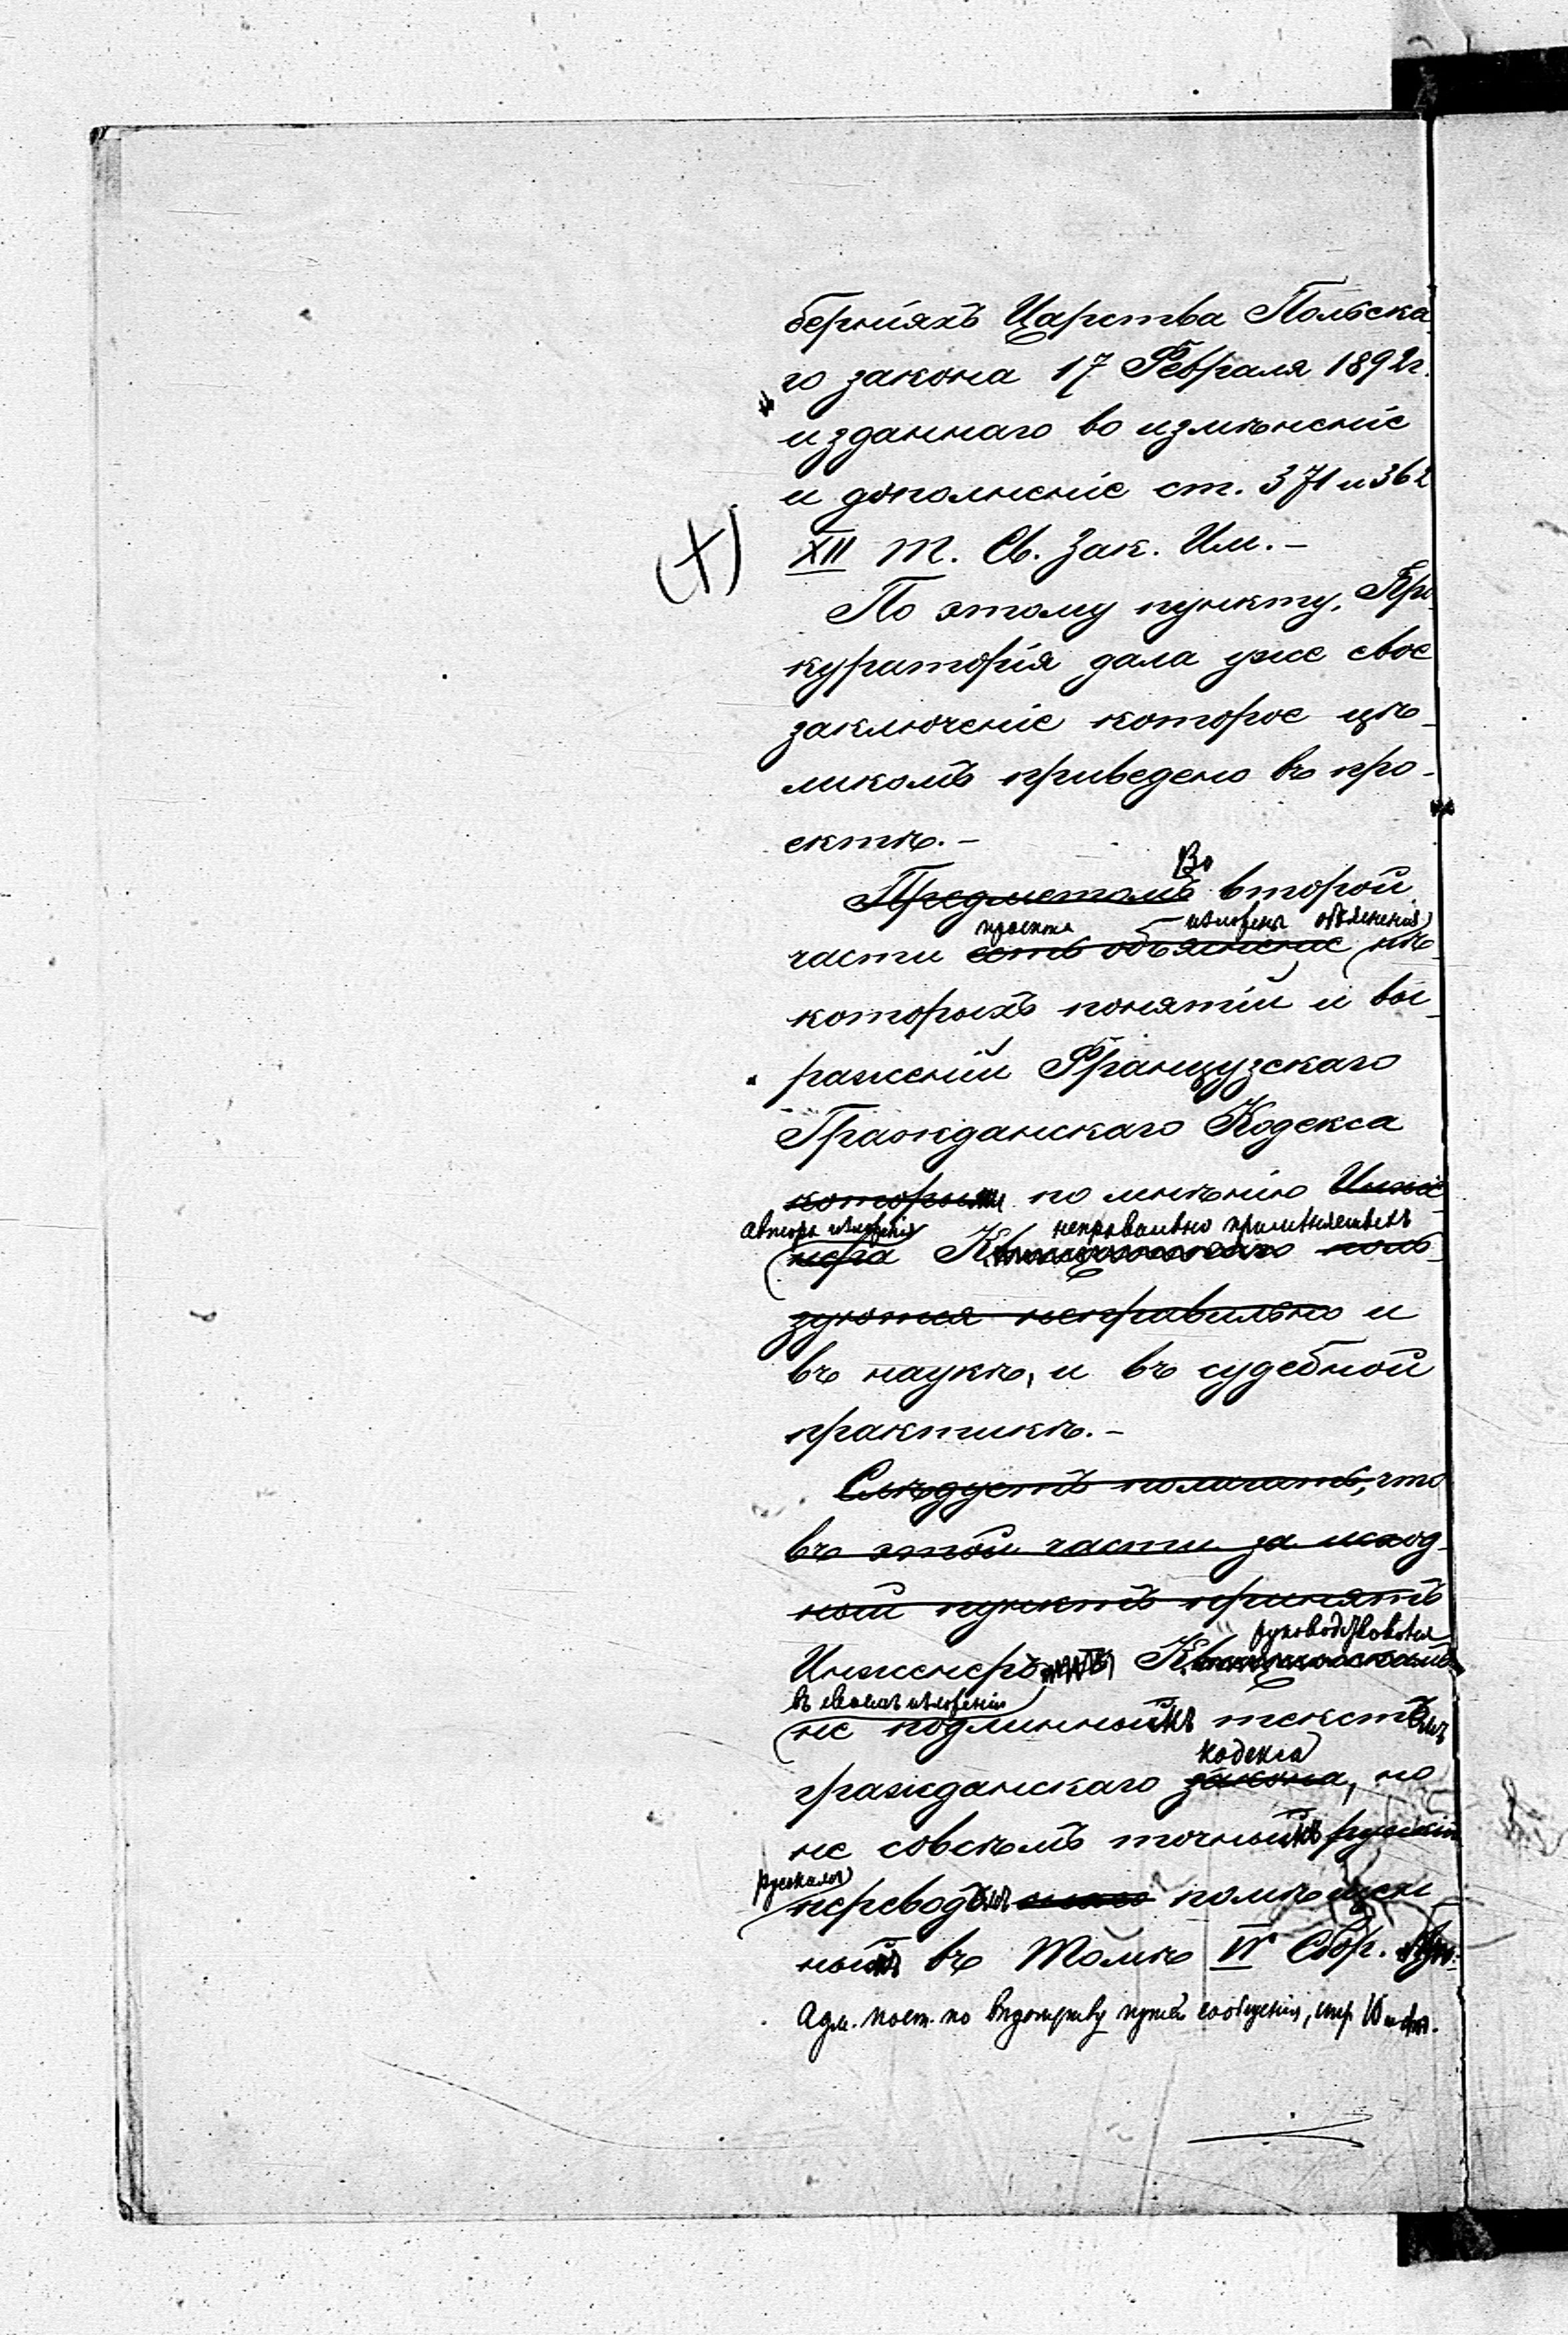 берніяхъ Царства Польска
го закона 17 Февраля 1892г.
изданнаго во измѣненіе
и дополненіе ст. 371 и 362
(+) XII т. Св. Зак. Им.-
По этому пункту, Про
кураторія дала уже свое
заключеніе которое цѣ-
ликомъ приведено въ про-
ектѣ.-
Во
Предметомъ второй
проекта изложены объясненія
части есть объясненіе нѣ-
которыхъ понятій и вы-
раженій Французскаго
Гражданскаго Кодекса
которыя по мнѣнію Инже
автора неправильно примѣняемыхъ
нера поль-
зуются неправильно и
въ наукѣ, и въ судебной
практикѣ.-
Слѣдуетъ полагать, что
въ этой части за исход-
ный пунктъ принятъ
руководствовался
Инженеръ
въ своемъ изложеніи
не подлиннымъ текстомъ
кодекса
гражданскаго закона, но
не совсѣмъ точнымъ русскій
русскимъ
переводомъ помѣщен
нымъ въ Томѣ VI Сбор.
Адм. пост. по вѣдомству путей сообщенія, стр.